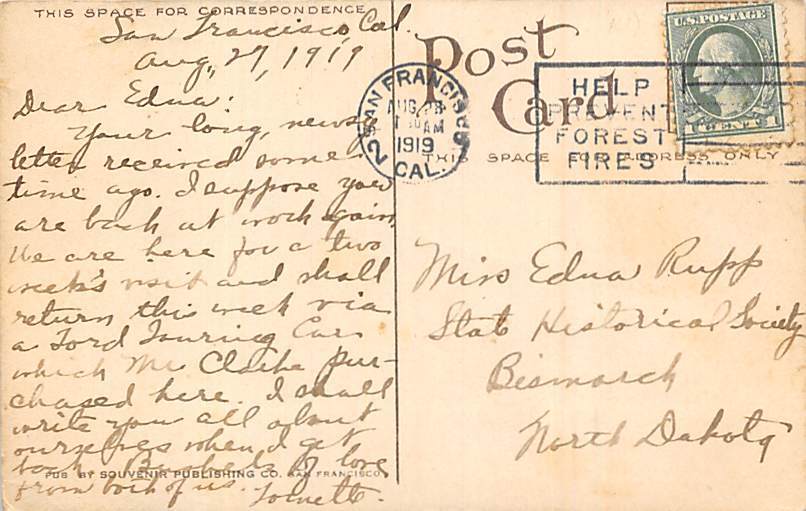 THIS SPACE FOR CORRESPONDENCE
San Francisco, Cal.
Aug, 27, 1919
Dear Edna:
Your long, newsy
letter received some
time ago. I suppose you
are back at work again
We are here for a two
week's visit and shall
return this week via
a Ford Touring Car
which Mr Clarke pur-
chased here. I shall
write you all about
ourselves when I get
back. Bushels of love
PUB BY SOUVENIR PUBLISHING CO. SAN FRANCISCO
from both of us.
Post
Card
THIS SPACE FOR ADDRESS ONLY
SAN FRANCISCO
AUG 28
AM
1919
CAL.
2
HELP
PREVENT
FOREST
FIRES
U.S. POSTAGE
1 CENT 1
Miss Edna Rupp
State Historical Society
Bismarck
North Dakota